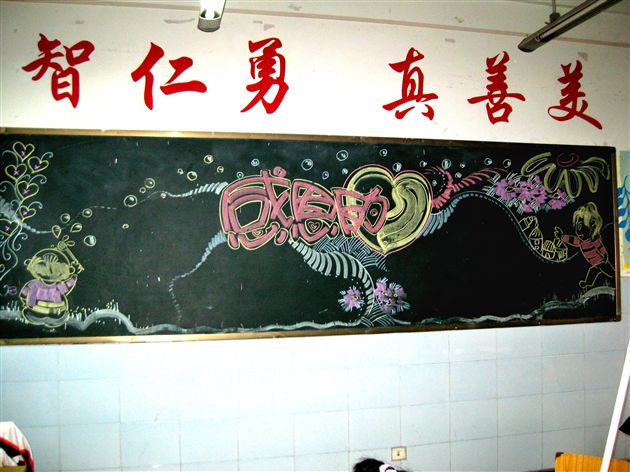 智仁勇 真善美
感恩的心